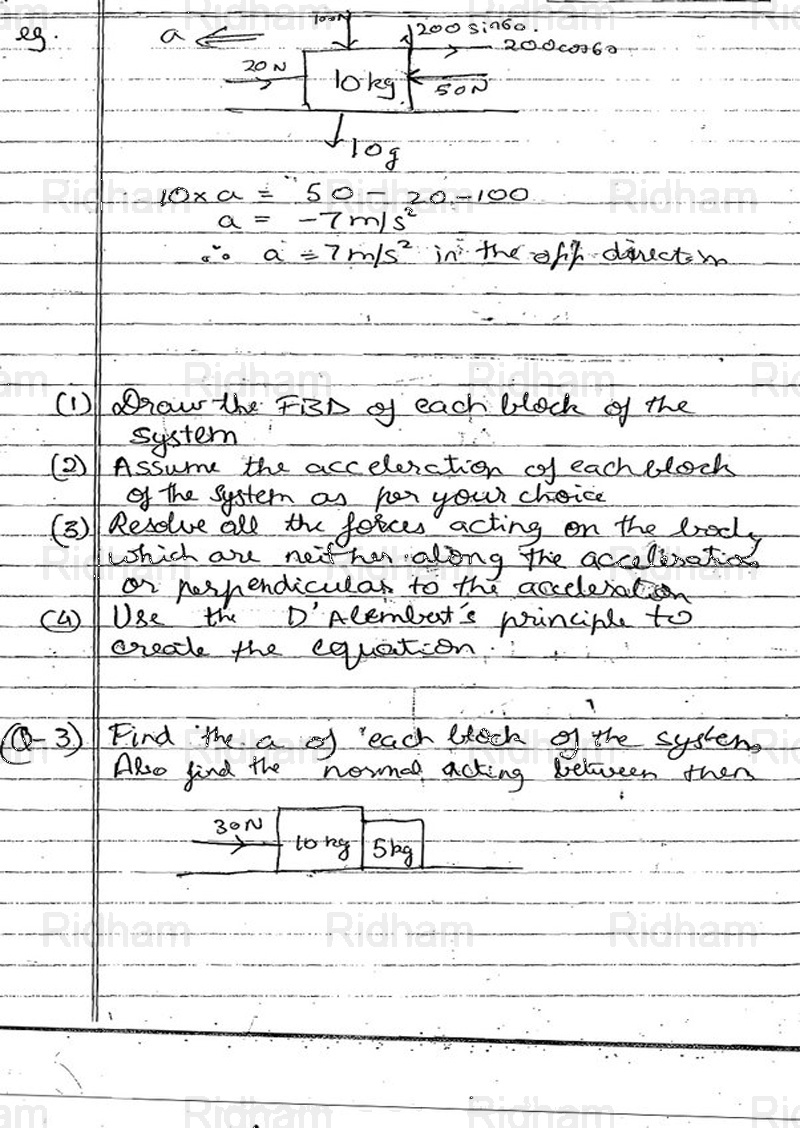 eg.
a
100N
200 sin60.
200cos60
20N
10kg
50N
10g
10 x a = 50 - 20 - 100
a = -7m/s²
∴ a = 7m/s² in the opp. direction
(1) Draw the FBD of each block of the
system
(2) Assume the acceleration of each block
of the system as per your choice
(3) Resolve all the forces acting on the body
which are neither along the acceleration
or perpendicular to the acceleration
(4) Use the D'Alembert's principle to
create the equation.
(Q-3) Find the a of each block of the system.
Also find the normal acting between them
30N
10 kg
5kg
Ridham